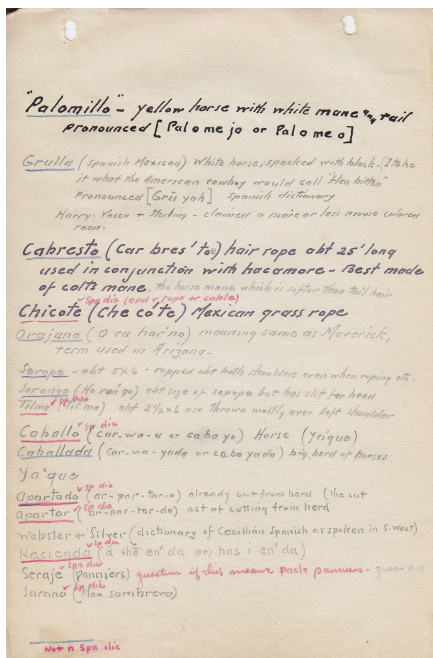 "Palomillo" - yellow horse with white mane and tail
pronounced [Palomejo or Palomeo]
Grulla (Spanish Mexican) White horse, specked with black - (I take
it what the American cowboy would call "flea bitten"
Pronounced [Gru yah] Spanish dictionary
Harry - Yasco + - claimed a more or less mouse colored
roan.
Cabresto (Car bres' to) hair rope abt 25' long
used in conjunction with hacamore - Best made
of colts mane, the horse mane which is softer than tail hair
Spn dic (end v rope or cable)
Chicote (Che có'te) Mexican grass rope
Orajano (O ra har'no) meaning same as Maverick,
term used in Arizona.
Serape - abt 5x6 - rapped abt both shoulders even when roping etc.
Sorongo (Ho ran'go) abt size of but has slit for head
Spn dic
Tilmo (til mo) abt 2½x6 use thrown mostly over left shoulder
Spn dic
Caballo (car-wa-u or caba yo) Horse (ya'que)
Caballada (car-wa-yada or caba yada) big herd of horses
Ya'que
Spn dic
Apartado (ar-par-tar-o) already cut from herd (the cut
Spn dic
Apartar (ar-par-tar-da) act of cutting from herd
Webster + Silver (dictionary of Cecillian Spanish as spoken in S-West)
Spn dic
Hacienda (a the en'da (or) has i en'da)
Spn dic
Seraje (Panniers) question if this means pack panners -
Spn dic
Sarano (Mex sombrero)
Not n Spn dic